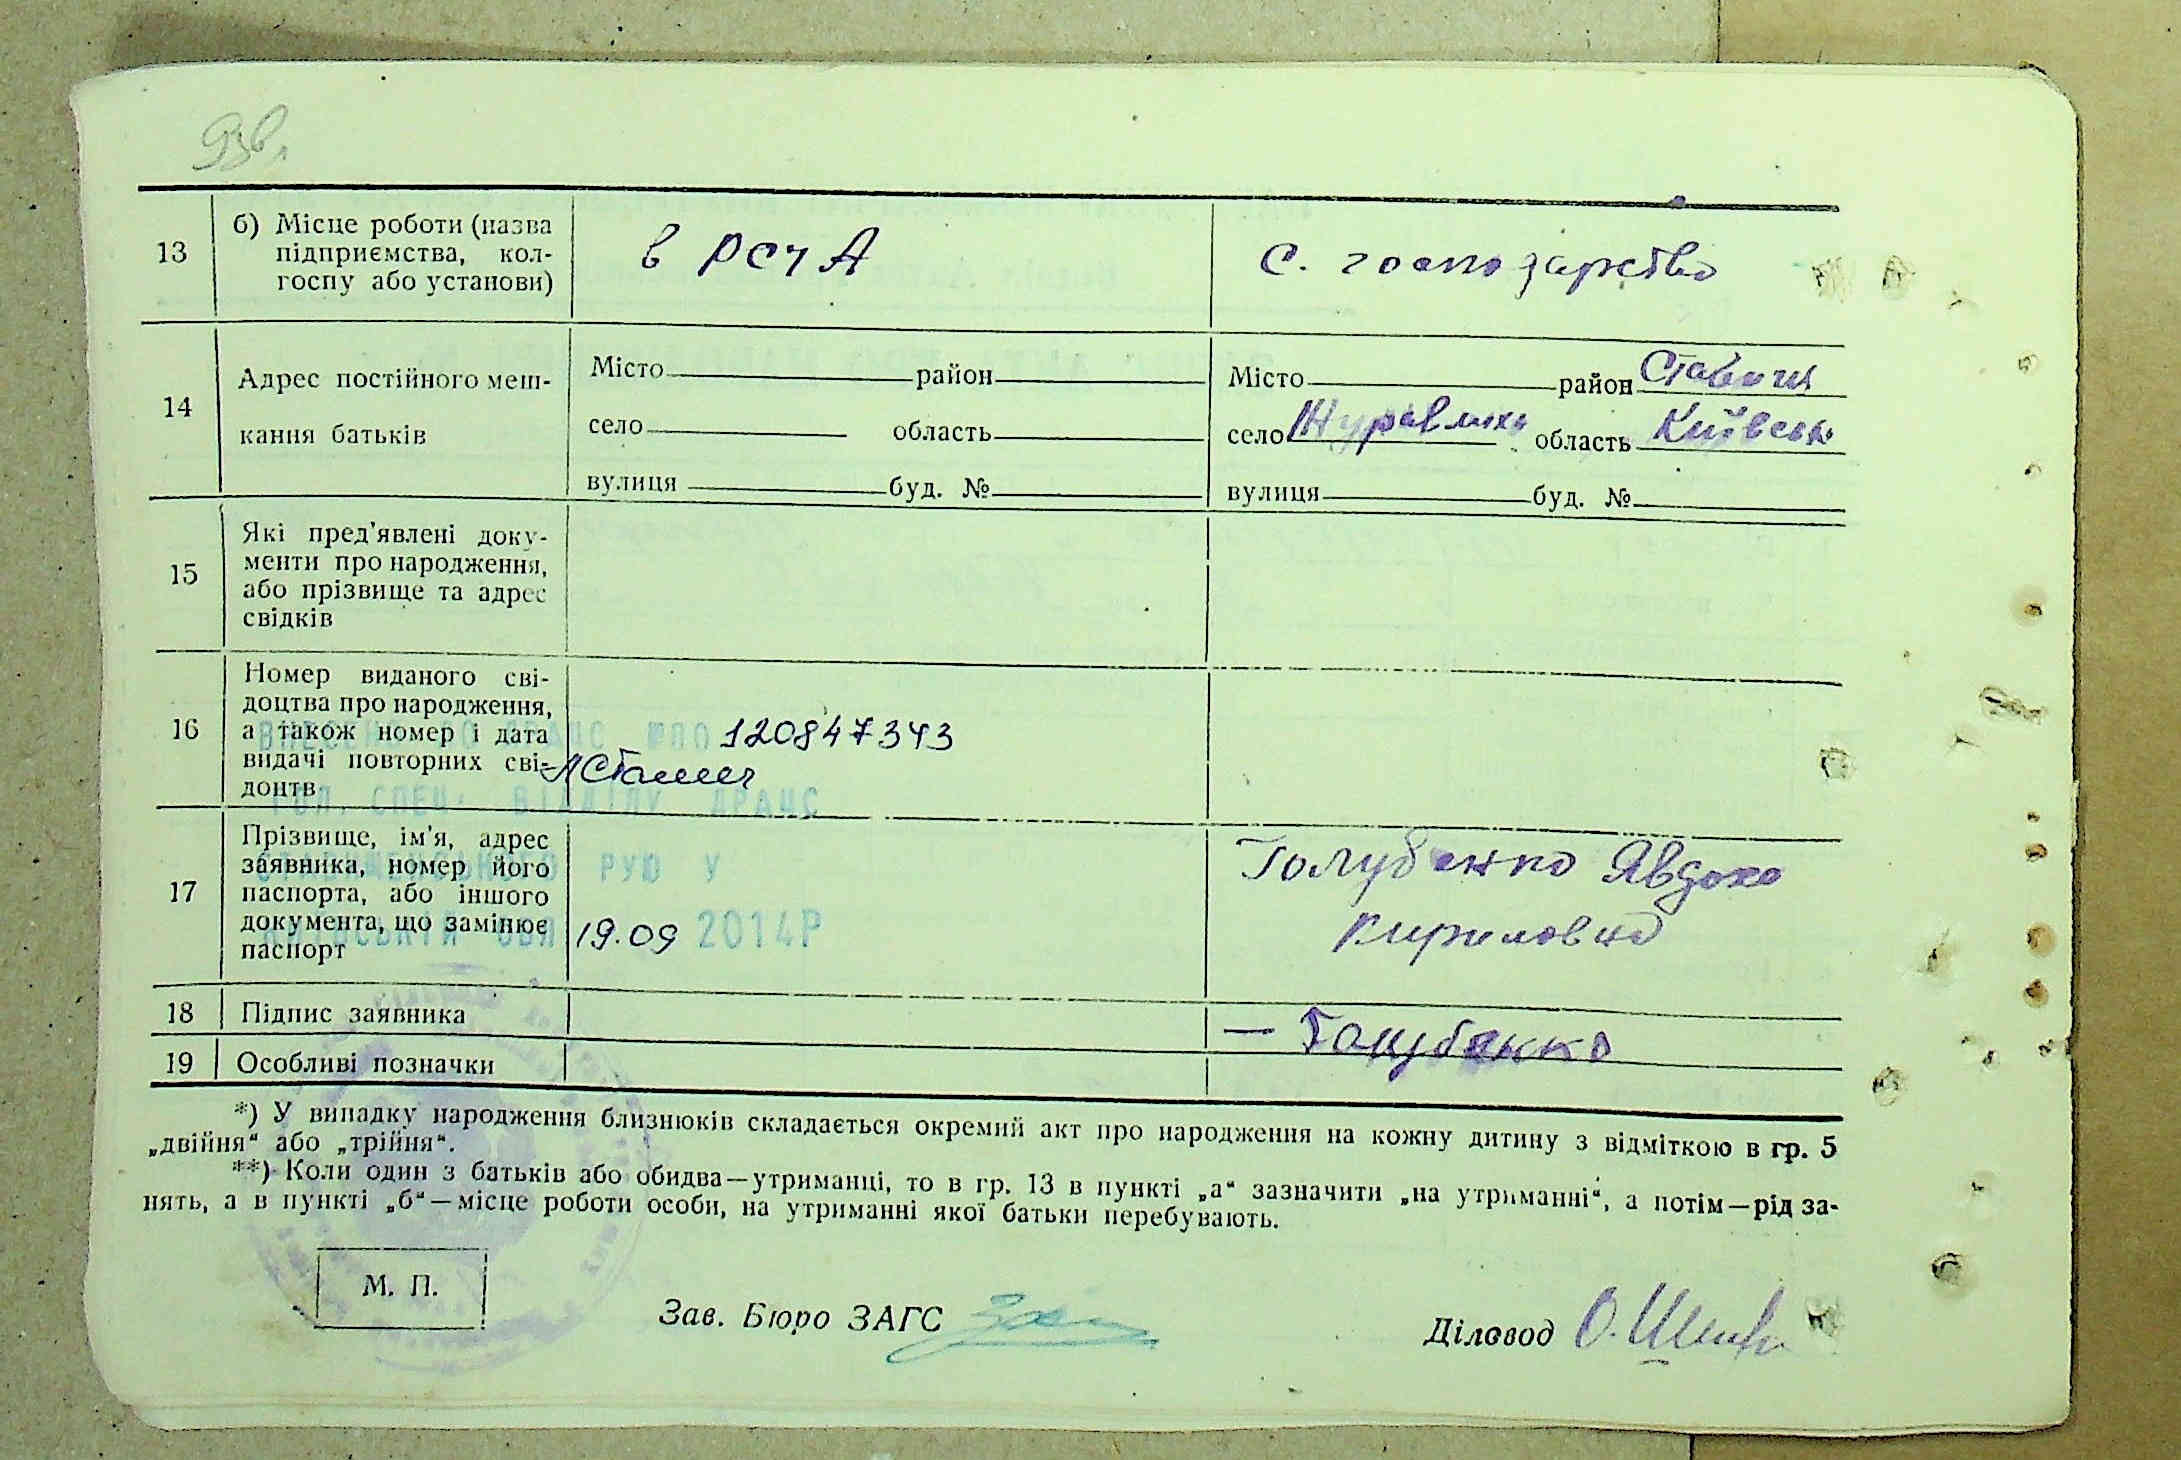 93в.
13
б) Місце роботи (назва
підприємства, кол-
госпу або установи)
в РСЧА
с. господарство
14
Адрес постійного меш-
кання батьків
Місто район
село область
вулиця буд. №
Місто район Ставищ
село Журавлиха область Київськ.
вулиця буд. №
15
Які пред'явлені доку-
менти про народження,
або прізвище та адрес
свідків
16
Номер виданого сві-
доцтва про народження,
а також номер і дата
видачі повторних сві-
доцтв
ВНЕСЕНО ДО ДРАЦС №00120847343
ГОЛ. СПЕЦ. ВІДДІЛУ ДРАЦС
17
Прізвище, ім'я, адрес
заявника, номер його
паспорта, або іншого
документа, що замінює
паспорт
СТАВИЩЕНСЬКОГО РУЮ У
КИЇВСЬКІЙ ОБЛ 19.09 2014Р
Голубенко Явдоха
Кириловна
18
Підпис заявника
— Голубенко
19
Особливі позначки
*) У випадку народження близнюків складається окремий акт про народження на кожну дитину з відміткою в гр. 5
„двійня“ або „трійня“.
**) Коли один з батьків або обидва—утриманці, то в гр. 13 в пункті „а“ зазначити „на утриманні“, а потім—рід за-
нять, а в пункті „б“—місце роботи особи, на утриманні якої батьки перебувають.
М. П.
Зав. Бюро ЗАГС
Діловод